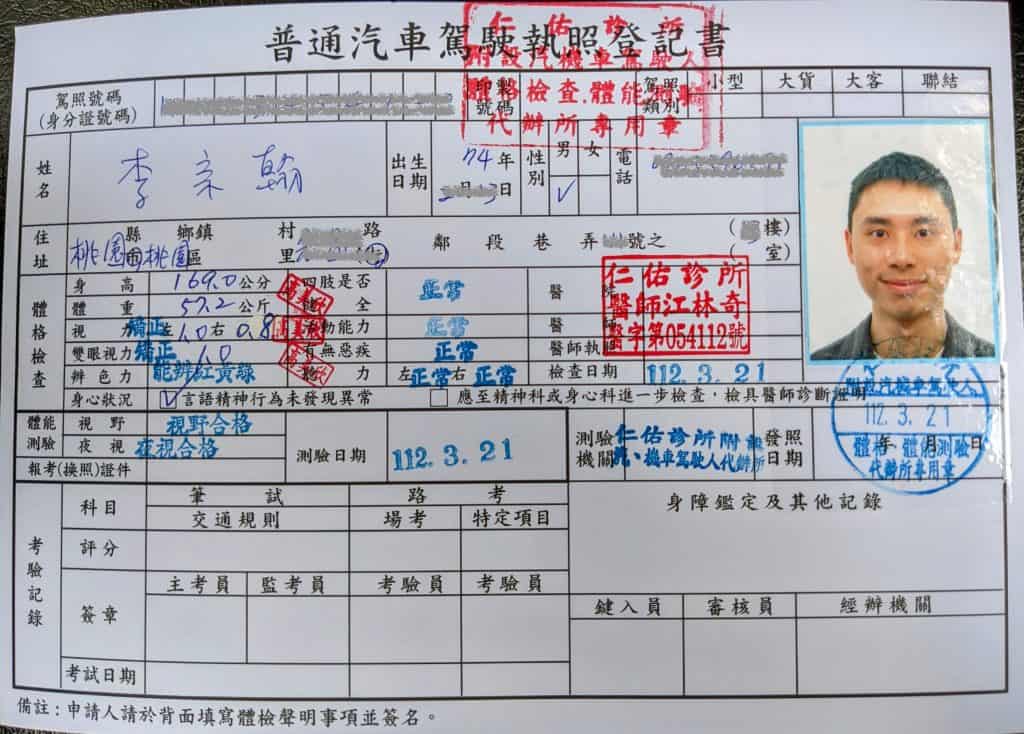 普通汽車駕駛執照登記書
仁佑診所
附設汽機車駕駛人
體格檢查.體能測驗
代辦所專用章
駕照號碼
(身分證號碼)
印製號碼
駕照類別
小型 大貨 大客 聯結
姓名
李宗翰
出生日期
74年
月 日
性別
男 女
✓
電話
住址
桃園 縣市 桃園 鄉鎮區
村里 路 鄰 段 巷 弄 號之 ( 樓) ( 室)
體格檢查
身高 169.0 公分 四肢是否健全 正常 醫院
仁佑診所
醫師江林奇
醫字第054112號
體重 57.2 公斤
視力 矯正 左 1.0 右 0.8 活動能力 正常 醫師
雙眼視力 矯正 1.0 有無惡疾 正常 醫師執照
辨色力 能辨紅黃綠 聽力 左 正常 右 正常 檢查日期 112.3.21
身心狀況 ☑言語精神行為未發現異常 □應至精神科或身心科進一步檢查,檢具醫師診斷證明
體能測驗
視野 視野合格
夜視 夜視合格
測驗日期 112.3.21
測驗機關
仁佑診所附設
汽、機車駕駛人代辦所
發照日期
年 月 日
附設汽機車駕駛人
112.3.21
體格、體能測驗
代辦所專用章
報考(換照)證件
考驗記錄
科目 筆試 路考
交通規則 場考 特定項目
身障鑑定及其他記錄
評分
簽章
主考員 監考員 考驗員 考驗員
鍵入員 審核員 經辦機關
考試日期
備註:申請人請於背面填寫體檢聲明事項並簽名。